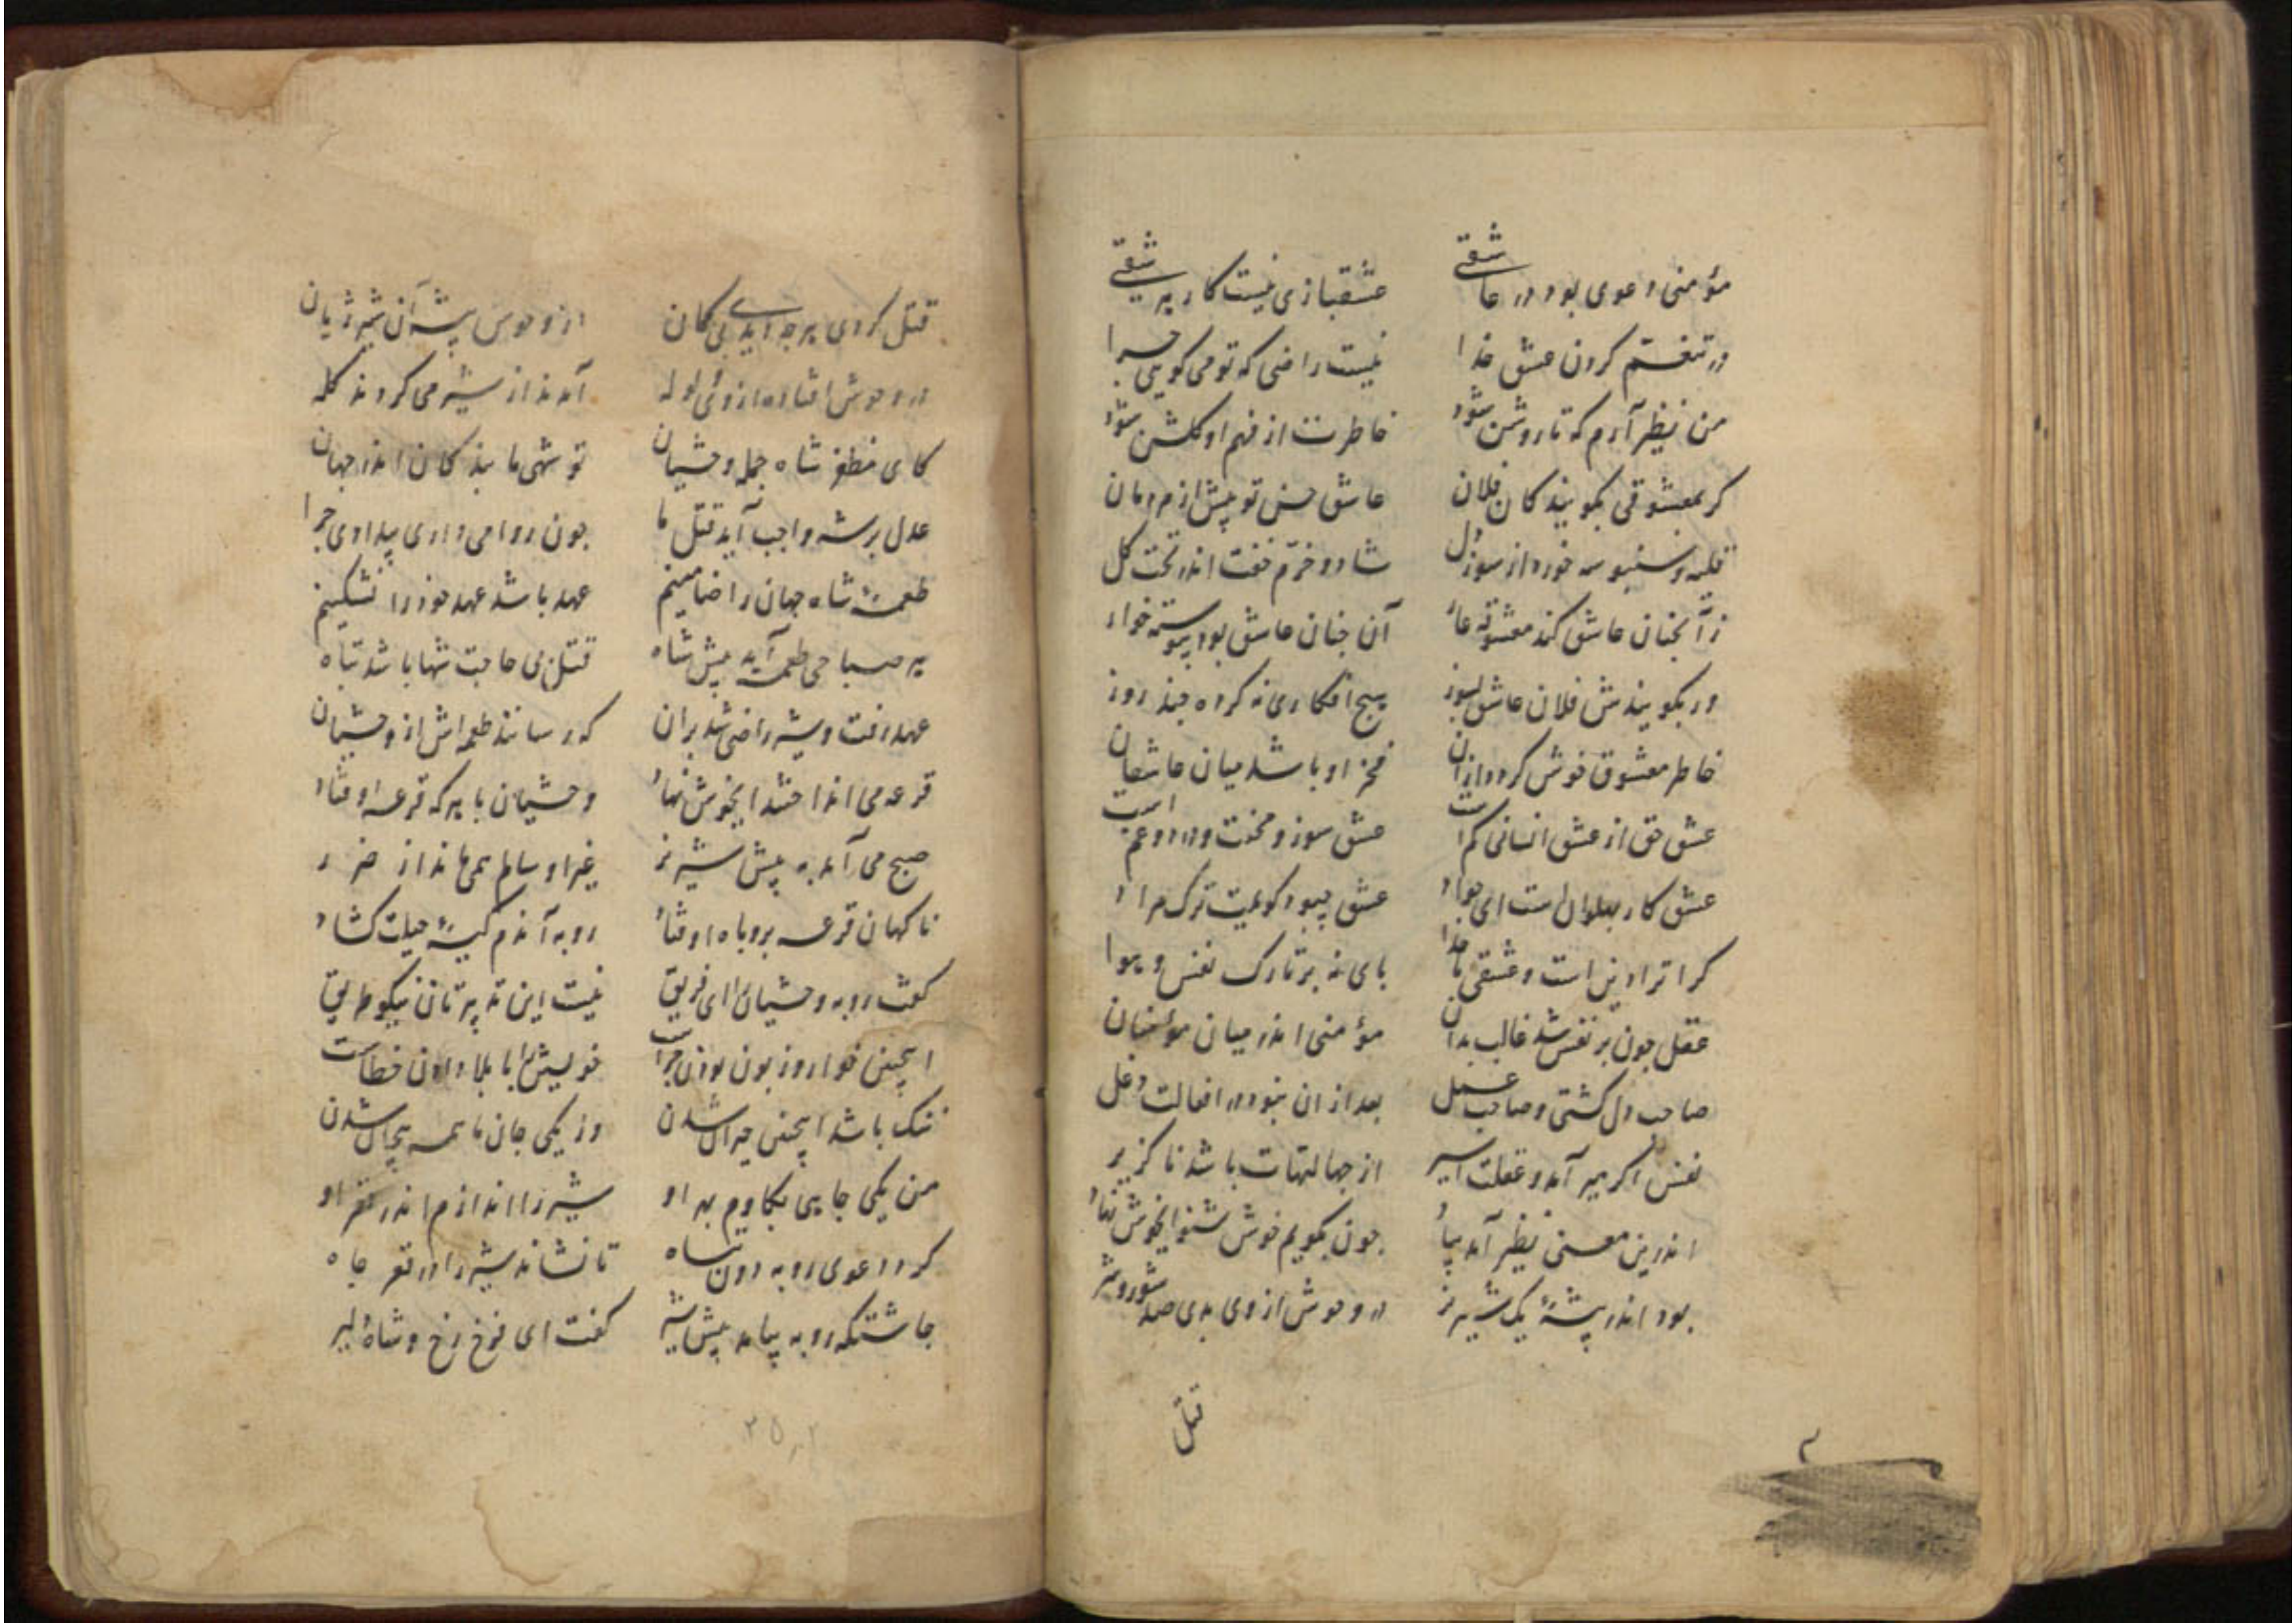 مؤمنی دعوی بود در عاشقی عشقبازی نیست کار هر شقی
در تنعّم کردن عشق خدا نیست راضی که تو می کویی چرا
من نظیر آرم که تا روشن شود خاطرت از فهم او کلشن شود
کر بمعشوقی بکویند کان فلان عاشق حسن تو بیش از مردمان
قلیه و سنبوسه خورد از سوز دل شاد و خرّم خفت اندر تخت کل
زآنچنان عاشق کند معشوقه عار آن چنان عاشق بود پیوسته خوار
ور بکویندش فلان عاشق بسوز هیچ افطاری نکرده چند روز
خاطر معشوق خوش کردد از آن فخر او باشد میان عاشقان
عشق حق از عشق انسانی کم است عشق سوز و محنت و درد و غم است
عشق کار پهلوان است ای جواد عشق چبود کویمت ترک مراد
کر ترا دین است و عشقی با خدا پای نه بر تارک نفس و هوا
عقل چون بر نفس شد غالب بدان مؤمنی اندر میان مؤمنان
صاحب دل کشتی و صاحب عمل بعد از ان نبود در افعالت دغل
نفس اکر میر آمد و عقلت اسیر از جهالتهات باشد ناکزیر
اندرین معنی نظیر آمد بیاد چون بکویم خوش شنو ای خوش نهاد
بود اندر بیشهٔ یک شیر نر در وحوش از وی بدی صد شور و شر
قتل
قتل کردی هر چه آیدی بی کمان از وحوش پیش آن شیر ژیان
در وحوش افتاده از وی ولوله آمدند از شیر می کردند کله
کای مظفر شاه جمله وحشیان تو شهی ما بندکان اندر جهان
عدل بر شه واجب آید قتل ما چون روا می داری بیدادی چرا
طعمهٔ شاه جهان را ضامنیم عهد باشد عهد خود را نشکنیم
هر صباحی طعمه آید پیش شاه قتل بی حاجت شها باشد تباه
عهد رفت و شیر راضی شد بران که رسانند طعمه اش از وحشیان
قرعه می انداختند ای خوش نهاد وحشیان با هر که قرعه اوفتاد
صبح می آمد به پیش شیر نر غیر او سالم همی ماند از ضرر
ناکهان قرعه بروباه اوفتاد روبه آندم کیسهٔ حیلت کشاد
کفت روبه وحشیان را ای فریق نیست این تدبیرتان نیکو طریق
اینچنین خوار و زبون بودن چراست خویش را با بلا دادن خطاست
ننک باشد اینچنین حیران شدن وز یکی جان ما همه بیجان شدن
من یکی چاهی بکاوم بهر او شیر را اندازم اندر قعر او
کرد دعوی روبه دون ساه تا نشاند شیر را در قعر چاه
چاشتکه روبه بیامد پیش شیر کفت ای فرخ رخ و شاه دلیر